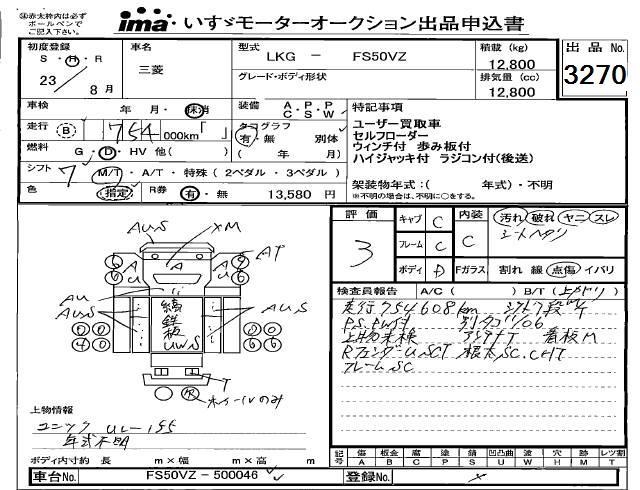 ㊟赤太枠内は必ず
ボールペンで
ご記入下さい。
ima いすゞモーターオークション出品申込書
初度登録
S・H・R
23 8月
車名
三菱
型式
LKG － FS50VZ
グレード・ボディ形状
積載 (kg)
12,800
排気量 (cc)
12,800
出品 No.
3270
車検 年・月・抹消
装備 A・P・P
C・S・W
走行 B 754 000km「 」
タコグラフ
有・無 別体
( 年 月)
燃料 G・D・HV 他( )
シフト 7 M/T・A/T・特殊 (2ペダル・3ペダル)
色 指定 R券 有・無 13,580 円
特記事項
ユーザー買取車
セルフローダー
ウィンチ付 歩み板付
ハイジャッキ付 ラジコン付(後送)
架装物年式:( 年式)・不明
※不明の場合は、不明に○をする。
評価
3
キャブ C
フレーム C
ボディ D
内装 C
汚れ 破れ ヤニ スレ
シートヘタリ
Fガラス 割れ 線 点傷 イバリ
検査員報告 A/C ( ) B/T (
走行754608km シフト7段
P.S. PW付
上物未検 看板M
フレームSC
AUS XM
A U A A U AT
AU
AUS AUS
縞鉄板
UWS
T
ホイールのみ
上物情報
ユニック UL-155
年式不明
ボディ内寸約 長 m×幅 m×高 m
記号 傷A 板金B 腐C 塗P 錆S 凹凸曲U 波W 穴H 跡M レツ割T
車台No. FS50VZ－500046
登録No.